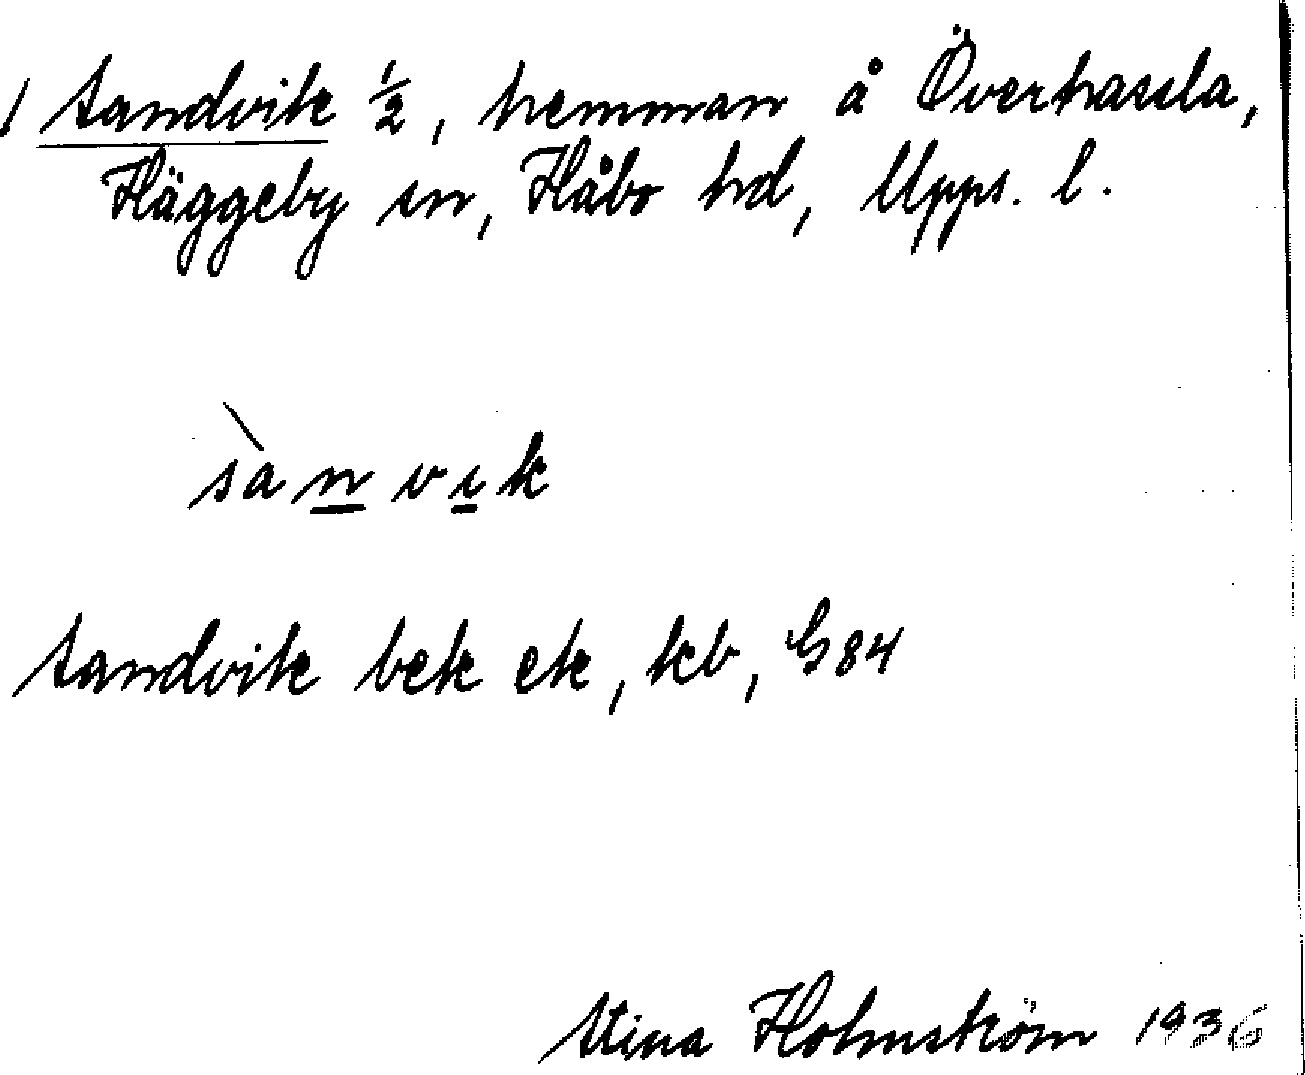 / Sandvik ½, hemman å Överhassla,
Häggeby sn, Håbo hd, Upps. l.
sànvık
Sandvik bek ek, kb, G84
Stina Holmström 1936